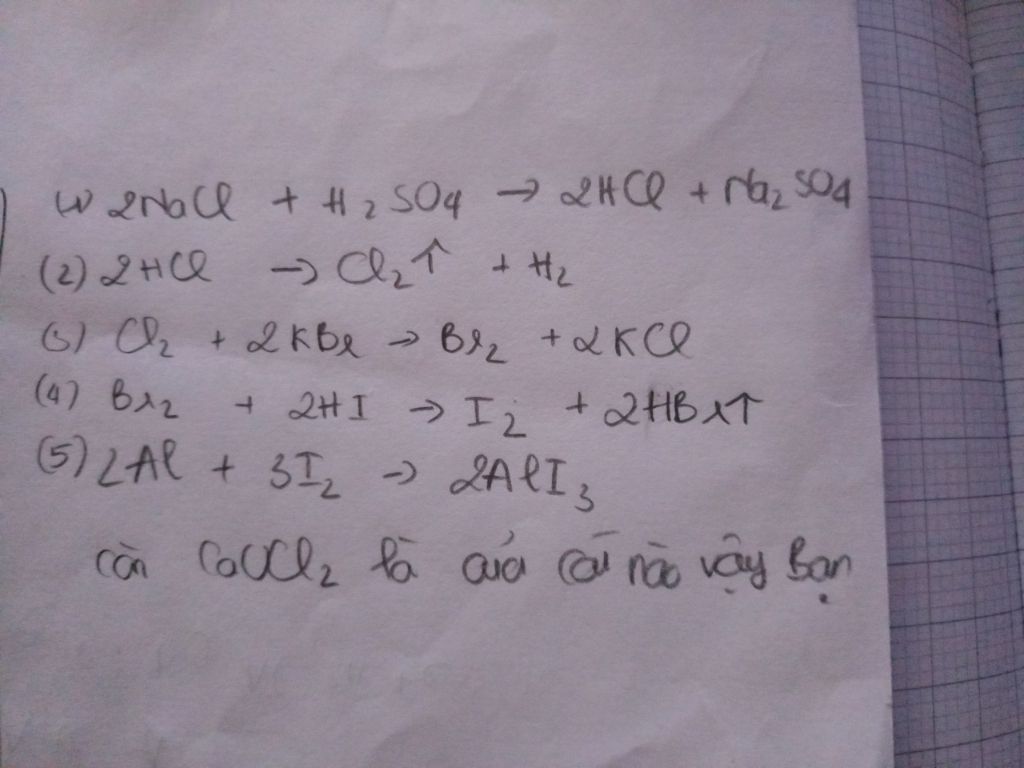 (1) 2NaCl + H₂SO₄ → 2HCl + Na₂SO₄
(2) 2HCl → Cl₂↑ + H₂
(3) Cl₂ + 2KBr → Br₂ + 2KCl
(4) Br₂ + 2HI → I₂ + 2HBr↑
(5) 2Al + 3I₂ → 2AlI₃
còn CaOCl₂ là của cái nào vậy bạn